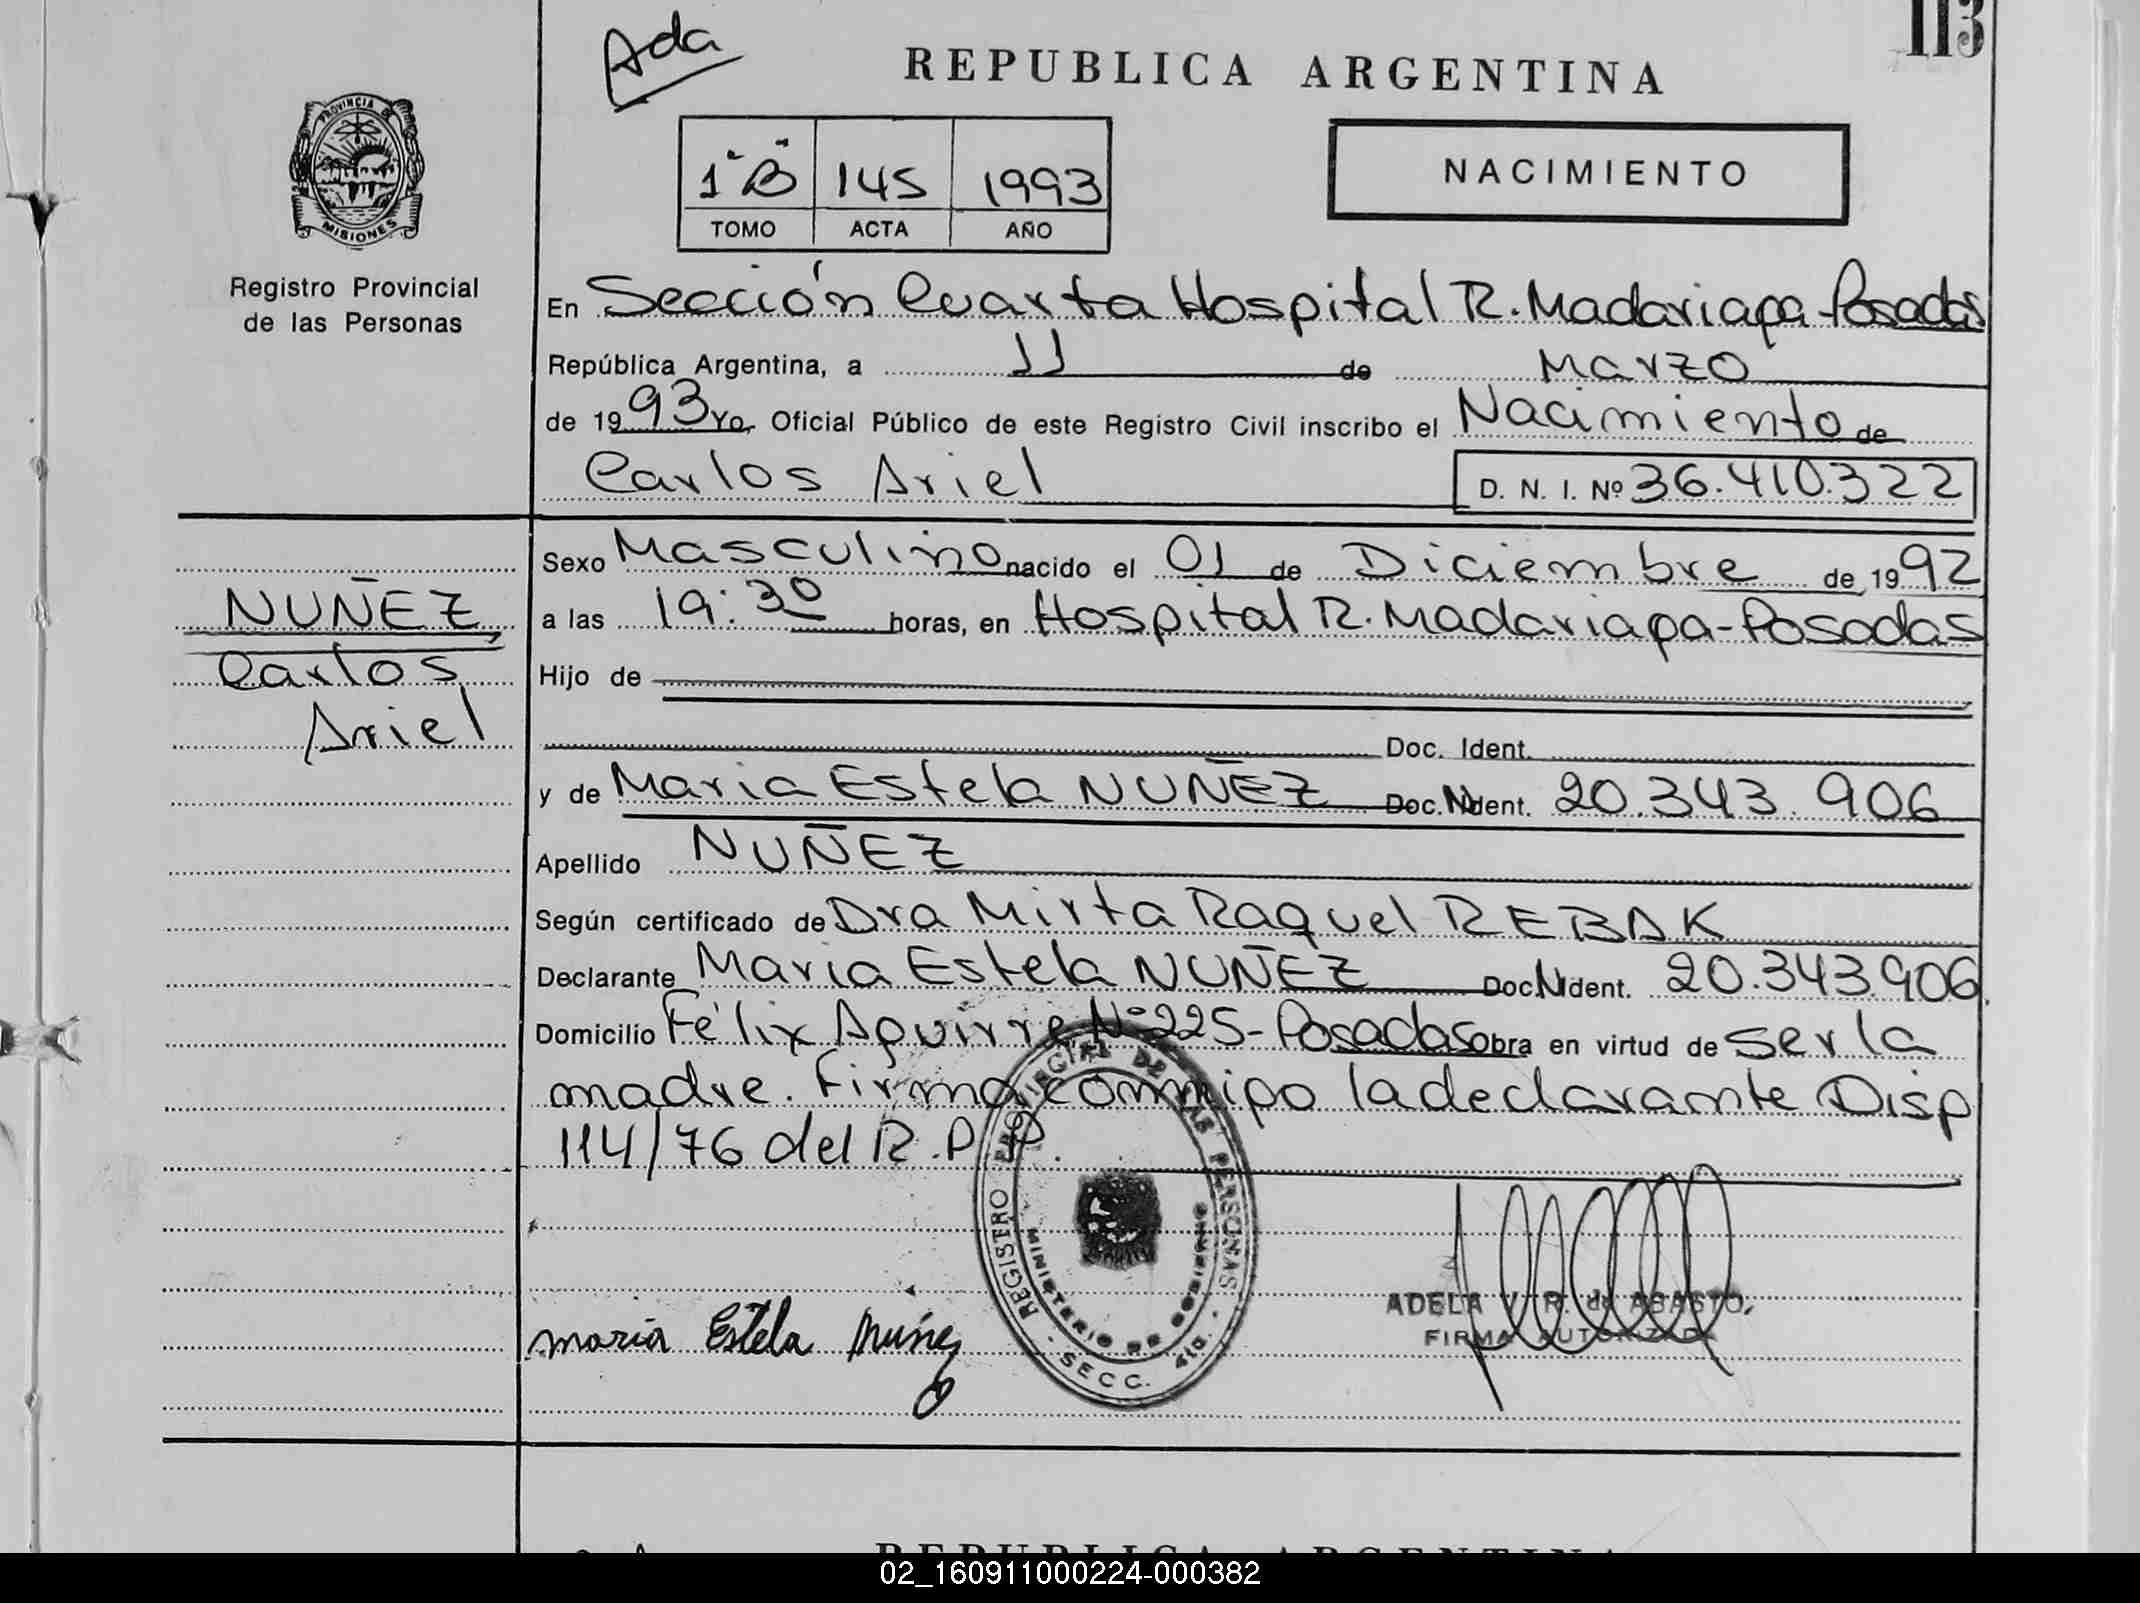 113
Ada
REPUBLICA ARGENTINA
PROVINCIA DE
MISIONES
Registro Provincial
de las Personas
1º "B" 145 1993
TOMO ACTA AÑO
NACIMIENTO
En Sección Cuarta Hospital R. Madariaga - Posadas
República Argentina, a 11 de Marzo
de 1993 Yo, Oficial Público de este Registro Civil inscribo el Nacimiento de
Carlos Ariel D. N. I. Nº 36.410.322
Sexo Masculino nacido el 01 de Diciembre de 1992
a las 19:30 horas, en Hospital R. Madariaga - Posadas
NUÑEZ
Carlos
Ariel
Hijo de
Doc. Ident.
y de Maria Estela NUÑEZ Doc. N Ident. 20.343.906
Apellido NUÑEZ
Según certificado de Dra Mirta Raquel REBAK
Declarante Maria Estela NUÑEZ Doc. N Ident. 20.343.906
Domicilio Félix Aguirre Nº 225 - Posadas Obra en virtud de ser la
madre. Firma conmigo la declarante Disp
114/76 del R.P.P.
REGISTRO PROVINCIAL DE LAS PERSONAS
MINISTERIO DE GOBIERNO
SECC. 4ta.
maria Estela Nuñez
ADELA V. R. de ABASTO
FIRMA AUTORIZADA
REPUBLICA ARGENTINA
02_160911000224-000382